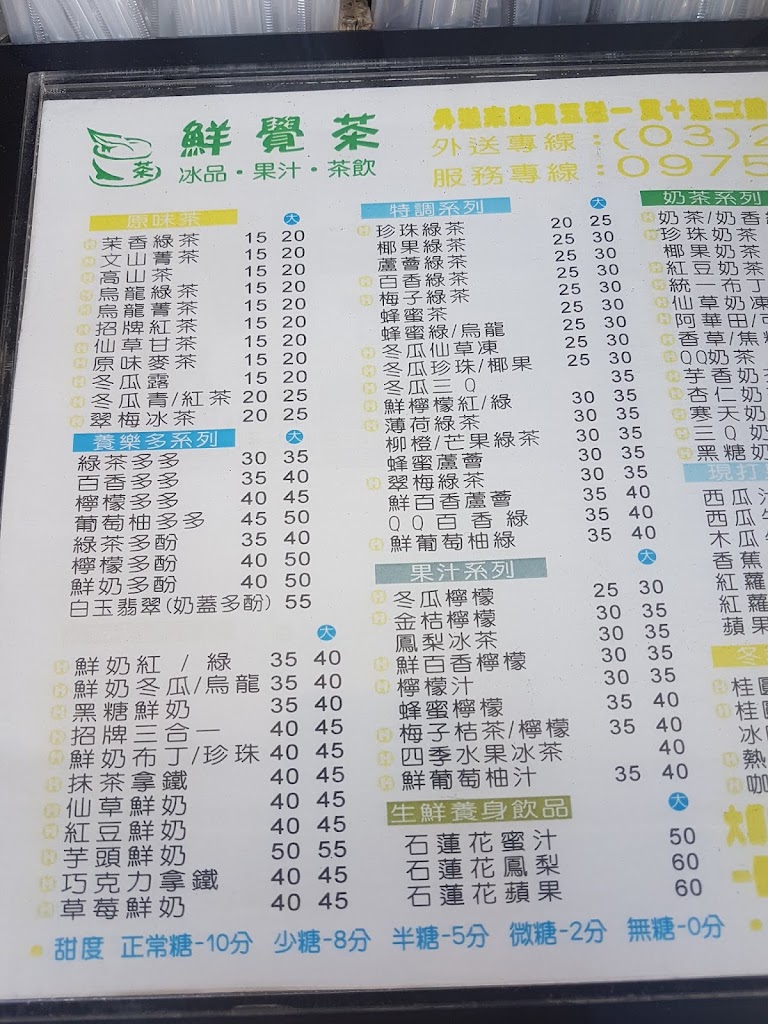 鮮覺茶
冰品·果汁·茶飲
外送專線:(03)2
服務專線:0975
原味茶 大
茉香綠茶 15 20
文山菁茶 15 20
高山茶 15 20
烏龍綠茶 15 20
烏龍菁茶 15 20
招牌紅茶 15 20
仙草甘茶 15 20
原味麥茶 15 20
冬瓜露 15 20
冬瓜青/紅茶 20 25
翠梅冰茶 20 25
養樂多系列 大
綠茶多多 30 35
百香多多 35 40
檸檬多多 40 45
葡萄柚多多 45 50
綠茶多酚 35 40
檸檬多酚 40 50
鮮奶多酚 40 50
白玉翡翠(奶蓋多酚) 55
大
鮮奶紅 / 綠 35 40
鮮奶冬瓜/烏龍 35 40
黑糖鮮奶 35 40
招牌三合一 40 45
鮮奶布丁/珍珠 40 45
抹茶拿鐵 40 45
仙草鮮奶 40 45
紅豆鮮奶 40 45
芋頭鮮奶 50 55
巧克力拿鐵 40 45
草莓鮮奶 40 45
特調系列 大
珍珠綠茶 20 25
椰果綠茶 25 30
蘆薈綠茶 25 30
百香綠茶 25 30
梅子綠茶 25 30
蜂蜜茶 25 30
蜂蜜綠/烏龍 25 30
冬瓜仙草凍 25 30
冬瓜珍珠/椰果 25 30
冬瓜三Q 35
鮮檸檬紅/綠 30 35
薄荷綠茶 30 35
柳橙/芒果綠茶 30 35
蜂蜜蘆薈 30 35
翠梅綠茶 30 35
鮮百香蘆薈 35 40
QQ百香綠 35 40
鮮葡萄柚綠 35 40
果汁系列 大
冬瓜檸檬 25 30
金桔檸檬 30 35
鳳梨冰茶 30 35
鮮百香檸檬 30 35
檸檬汁 30 35
蜂蜜檸檬 35 40
梅子桔茶/檸檬 35 40
四季水果冰茶 40
鮮葡萄柚汁 35 40
生鮮養身飲品 大
石蓮花蜜汁 50
石蓮花鳳梨 60
石蓮花蘋果 60
奶茶系列
奶茶/奶香
珍珠奶茶
椰果奶茶
紅豆奶茶
統一布丁
仙草奶凍
阿華田/
香草/焦
QQ奶茶
芋香奶
杏仁奶
寒天奶
三Q奶
黑糖奶
現打
西瓜汁
西瓜牛
木瓜牛
香蕉
紅蘿
紅蘿
蘋果
冬
桂圓
桂圓
冰
熱
咖
甜度 正常糖-10分 少糖-8分 半糖-5分 微糖-2分 無糖-0分